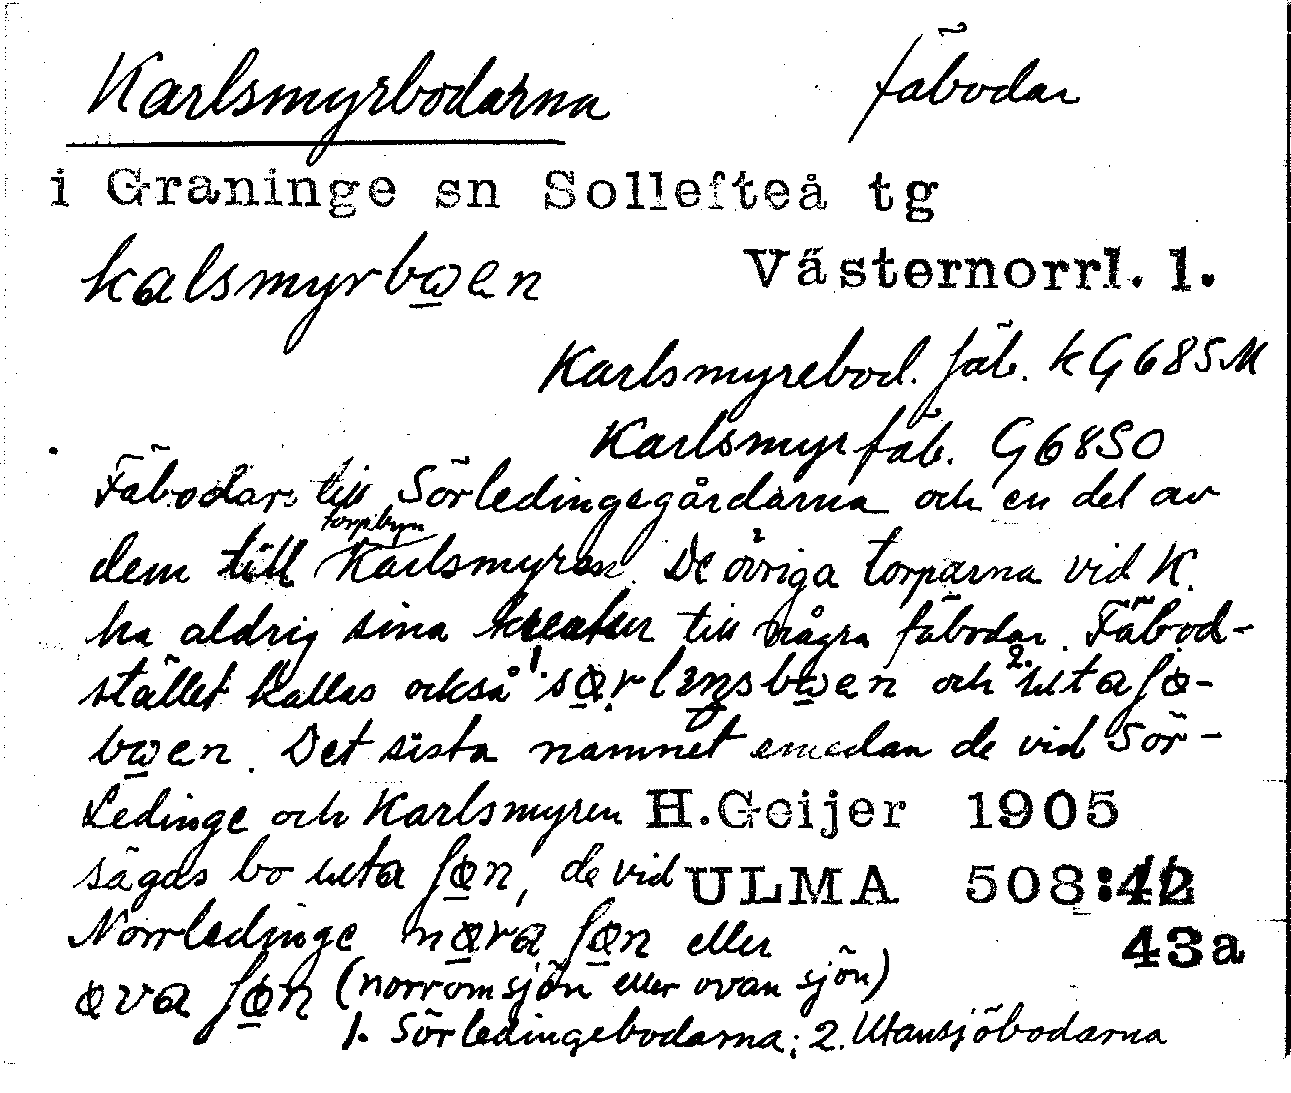 Karlsmyrbodarna fäbodar
i Graninge sn Sollefteå tg
kalsmyrbω̲en Västernorrl. l.
Karlsmyrebod. fäb. k G68SM
Karlsmyr fäb. G68SO
Fäbodar till Sörledingegårdarna och en del av
dem till torpbyn Karlsmyren. De övriga torparna vid K.
ha aldrig sina kreatur till några fäbodar. Fäbod-
stället kallas också ¹·sœ̲rlıŋsbω̲en och ²·uta ʃœ̲-
bω̲en. Det sista namnet emedan de vid Sör-
Ledinge och Karlsmyren H.Geijer 1905
sägas bo uta ʃœ̲n, de vid ULMA 508:42
Norrledinge nœ̲ra ʃœ̲n eller 43a
œva ʃœ̲n (norrom sjön eller ovan sjön)
1. Sörledingebodarna; 2. Utansjöbodarna